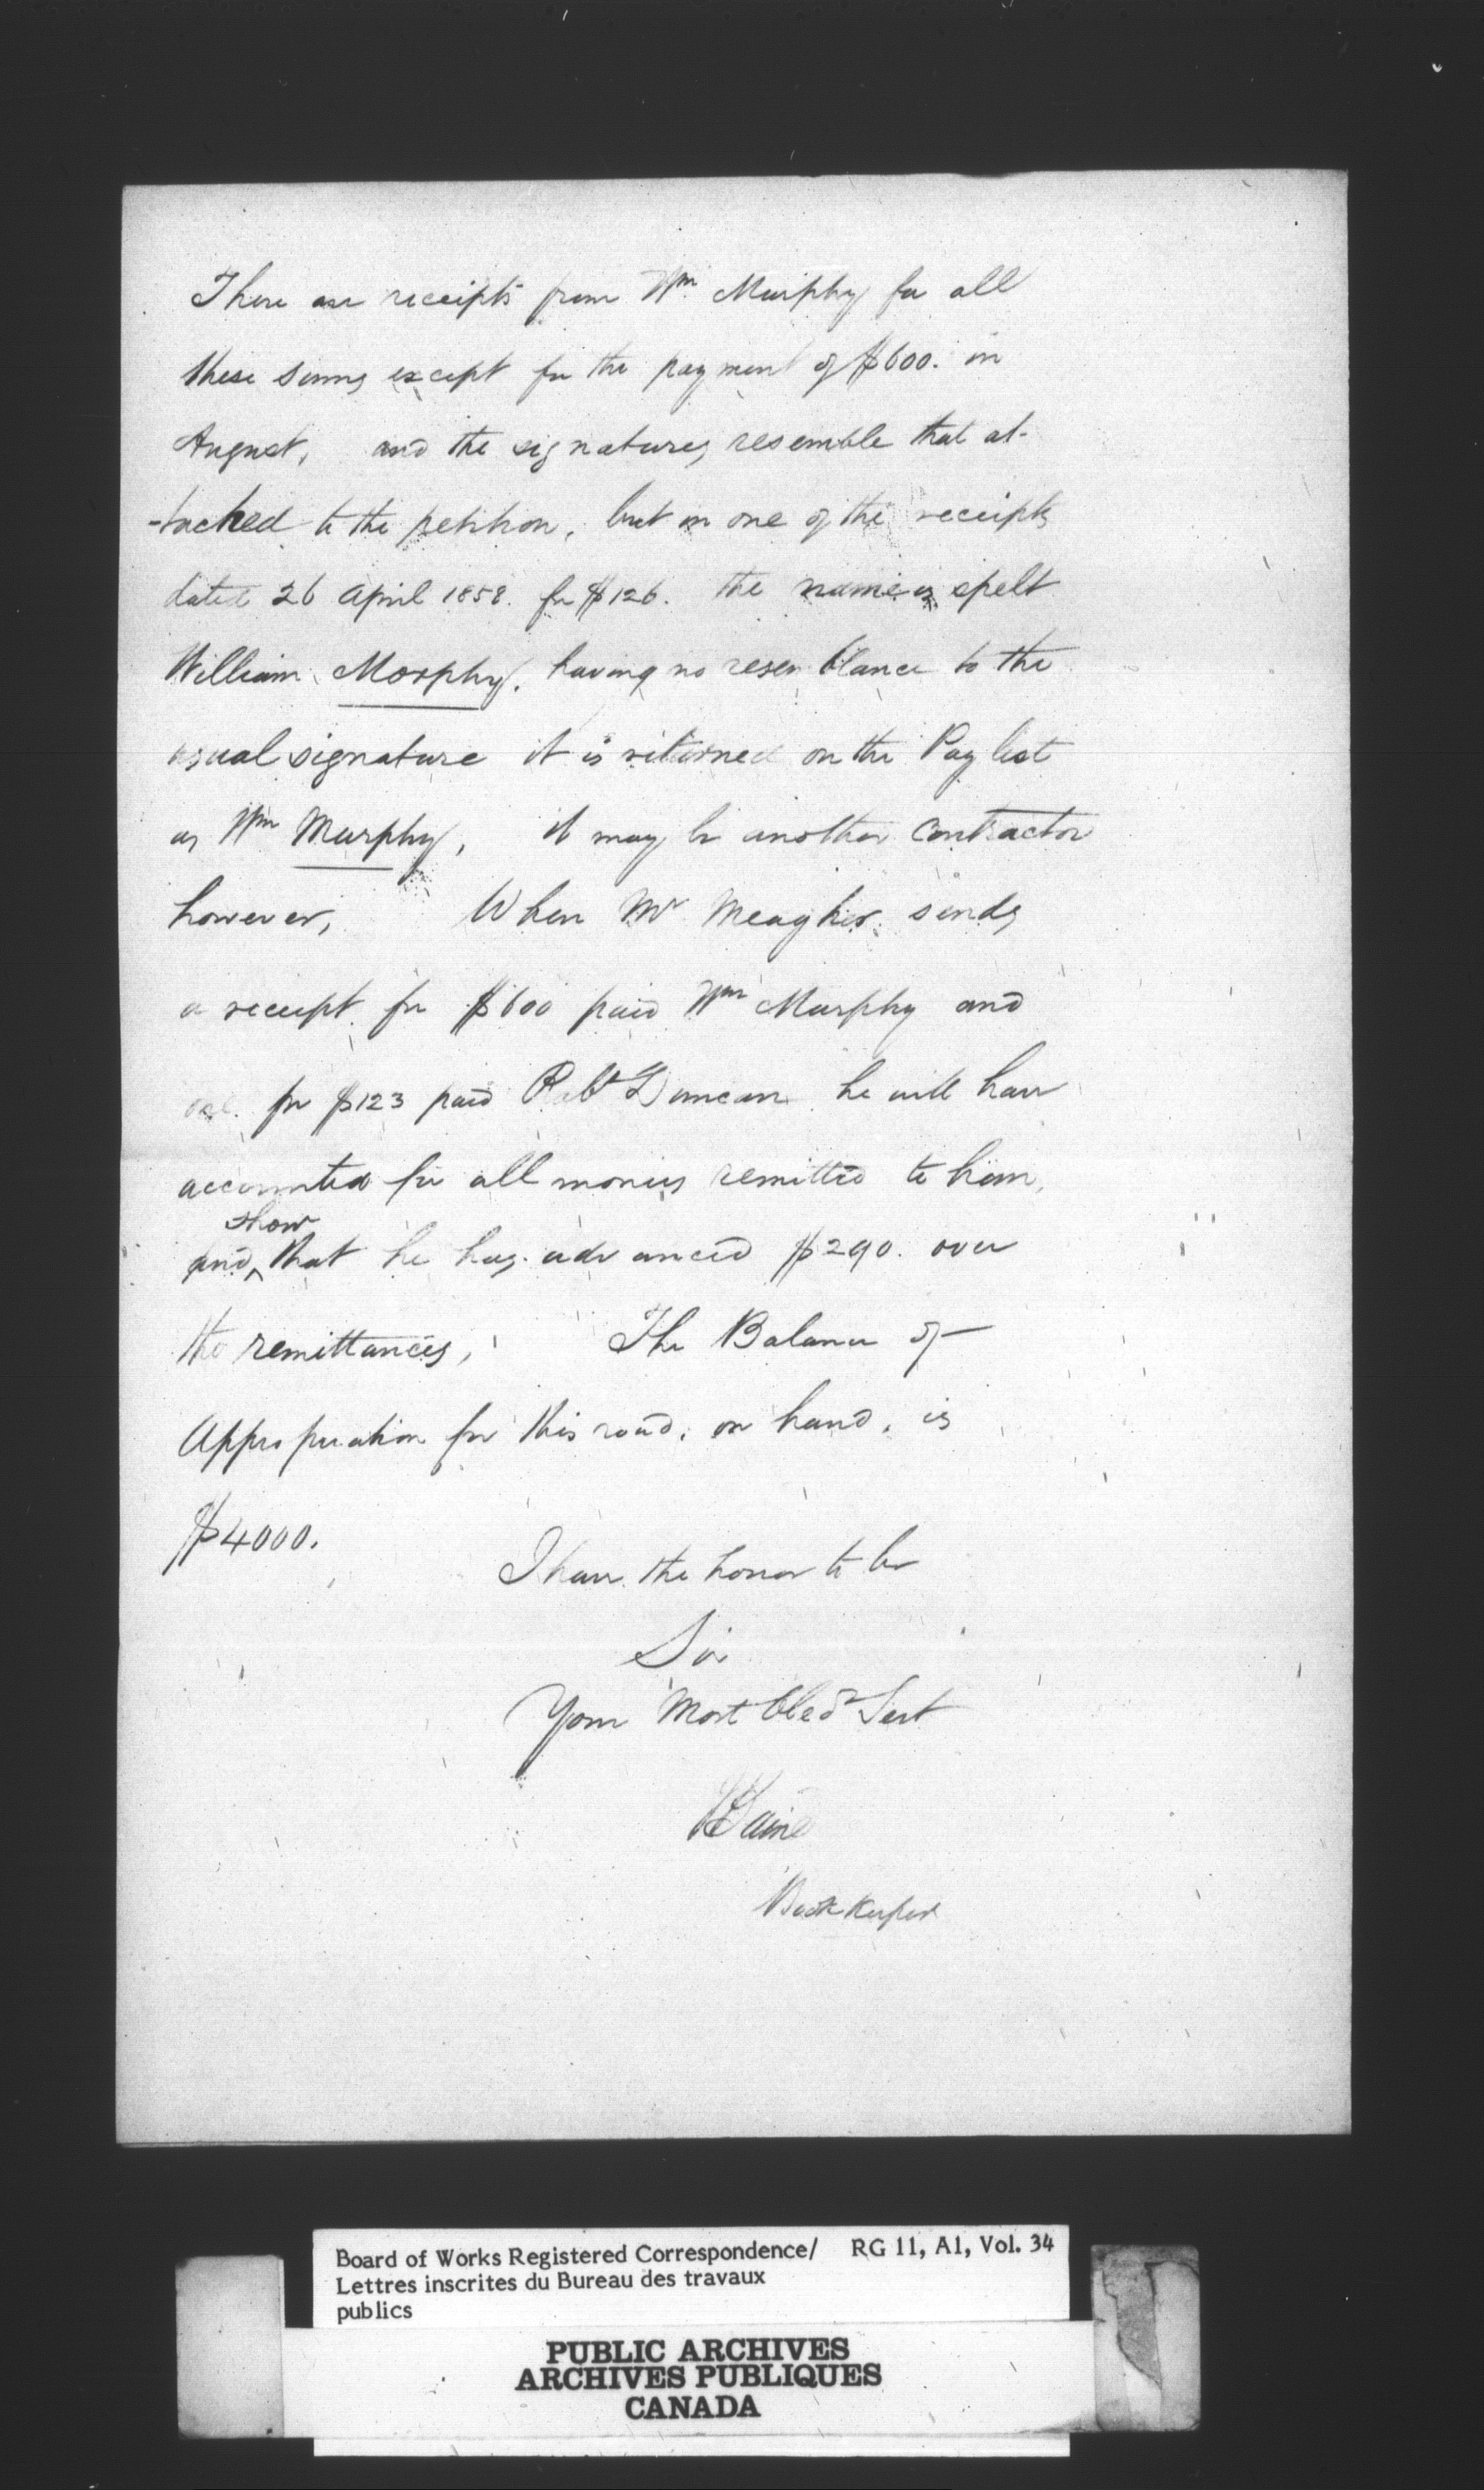 There are receipts from Wm Murphy for all
these sums except for the payment of $600. in
August, and the signatures resemble that at-
-tached to the petition, but in one of the receipts
dated 26 April 1858. for $126. the name is spelt
William Morphy, having no resemblance to the
usual signature it is returned on the Pay list
as Wm Murphy, it may be another Contractor
however, When Mr Meagher sends
a receipt for $600 paid Wm Murphy and
one for $123 paid Robt Duncan he will have
accounted for all moneys remitted to him,
show
and ^ that he has advanced $290. over
the remittances, The Balance of
Appropriation for this road, on hand, is
$4000.
I have the honor to be
Sir
Your Most Obedt Sert
Bookkeeper
Board of Works Registered Correspondence/ RG 11, A1, Vol. 34
Lettres inscrites du Bureau des travaux
publics
PUBLIC ARCHIVES
ARCHIVES PUBLIQUES
CANADA